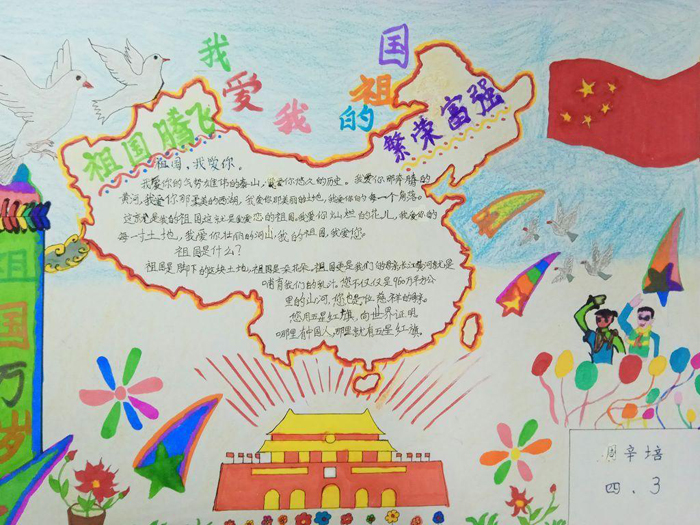 我爱我的祖国
祖国腾飞
繁荣富强
祖国，我爱你。
我爱你的气势雄伟的泰山，爱你悠久的历史。我爱你那奔腾的
黄河，我爱你那柔美的西湖，我爱你那美丽的土地，我爱你的每一个角落。
这就是我的祖国这就是我爱恋的祖国，我爱你灿烂的花儿，我爱你的
每一寸土地，我爱你壮丽的河山，我的祖国，我爱您。
祖国是什么？
祖国是脚下的这块土地，祖国是朵花朵。祖国更是我们的长江黄河就是
哺育我们的乳汁。您不仅仅是960万平方公
里的山河，您也是位慈祥的
您用五星红旗，向世界证明
哪里有中国人，那里就有五星红旗。
祖国万岁
辛培
四、3